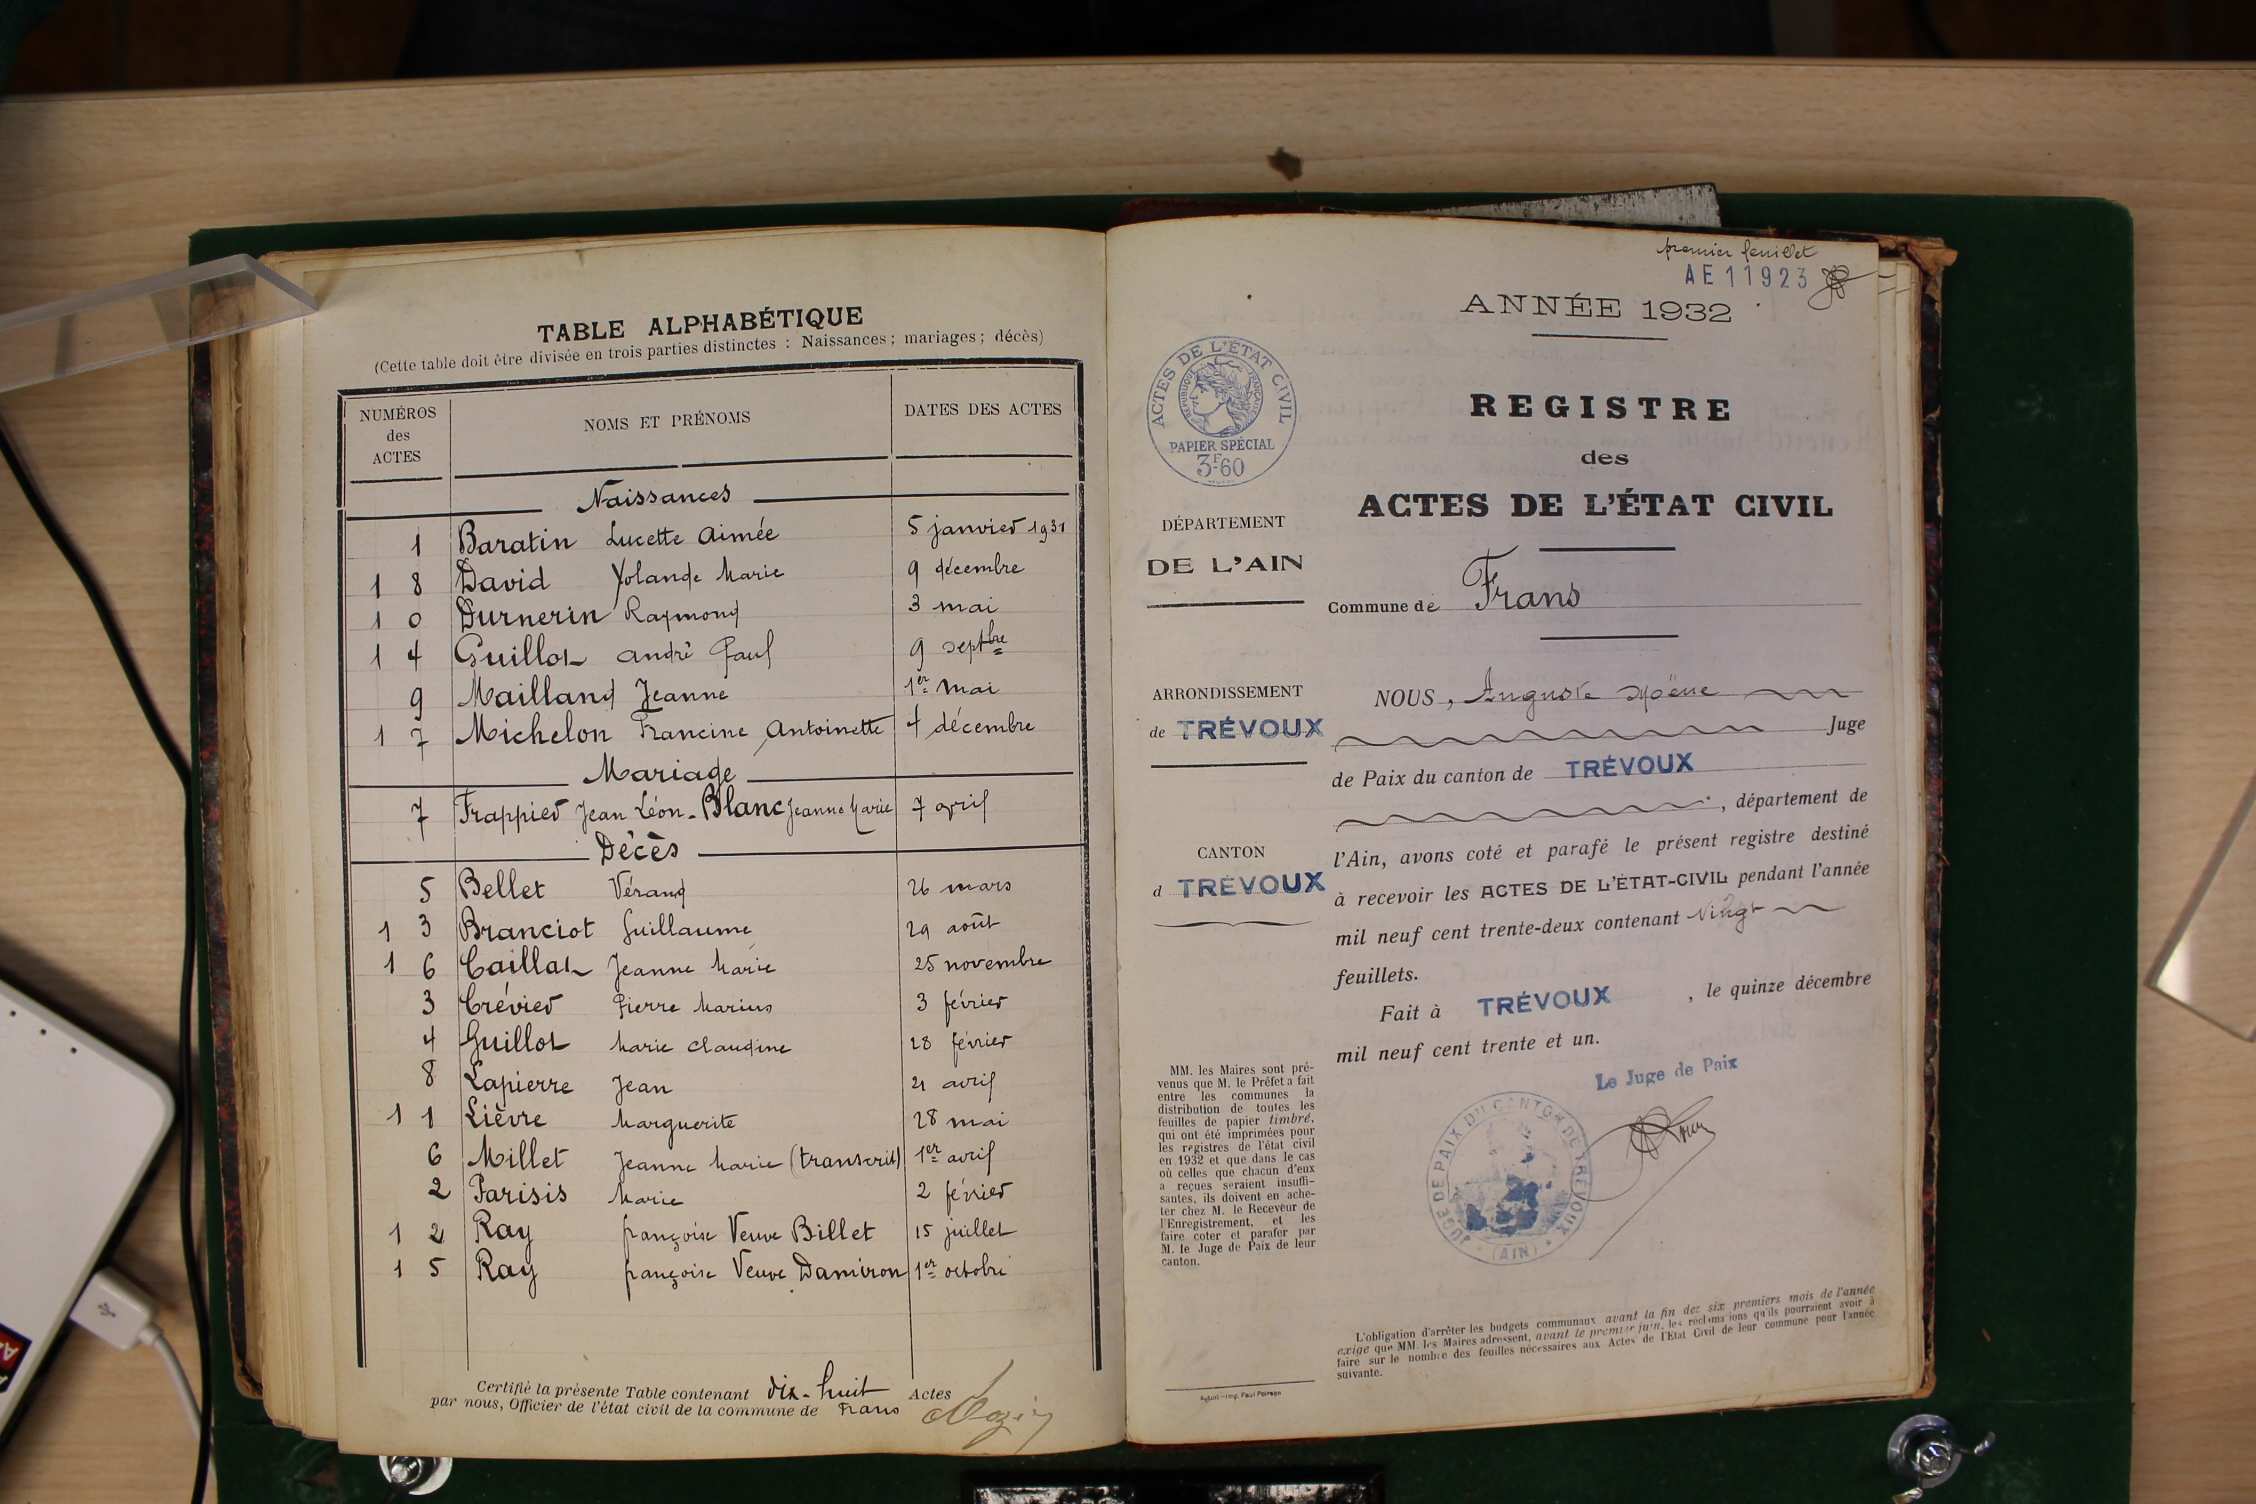 TABLE ALPHABÉTIQUE
(Cette table doit être divisée en trois parties distinctes : Naissances ; mariages ; décès)
NUMÉROS des ACTES NOMS ET PRÉNOMS DATES DES ACTES
Naissances
1 Baratin Lucette Aimée 5 janvier 1931
18 David Yolande Marie 9 décembre
10 Durnerin Raymond 3 mai
14 Guillot André Paul 9 septbre
9 Mailland Jeanne 1er mai
17 Michelon Francine Antoinette 4 décembre
Mariage
7 Frappier Jean Léon - Blanc Jeanne Marie 7 avril
Décès
5 Bellet Vérand 26 mars
13 Branciot Guillaume 29 août
16 Caillat Jeanne Marie 25 novembre
3 Crévier Pierre Marius 3 février
4 Guillot Marie Claudine 28 février
8 Lapierre Jean 21 avril
11 Lièvre Marguerite 28 mai
6 Millet Jeanne Marie (transcrit) 1er avril
2 Parisis Marie 2 février
12 Ray françoise Veuve Billet 15 juillet
15 Ray françoise Veuve Damiron 1er octobre
Certifié la présente Table contenant dix-huit Actes
par nous, Officier de l'état civil de la commune de Frans
premier feuillet
AE 11923
ANNÉE 1932
ACTES DE L'ÉTAT CIVIL
RÉPUBLIQUE FRANÇAISE
PAPIER SPÉCIAL
3F60
REGISTRE
des
ACTES DE L'ÉTAT CIVIL
DÉPARTEMENT
DE L'AIN
Commune de Frans
ARRONDISSEMENT
de TRÉVOUX
CANTON
d TRÉVOUX
NOUS, Auguste
Juge
de Paix du canton de TRÉVOUX
, département de
l'Ain, avons coté et parafé le présent registre destiné
à recevoir les ACTES DE L'ÉTAT-CIVIL pendant l'année
mil neuf cent trente-deux contenant vingt
feuillets.
Fait à TRÉVOUX , le quinze décembre
mil neuf cent trente et un.
Le Juge de Paix
JUGE DE PAIX DU CANTON DE TRÉVOUX
(AIN)
MM. les Maires sont pré-
venus que M. le Préfet a fait
entre les communes la
distribution de toutes les
feuilles de papier timbré,
qui ont été imprimées pour
les registres de l'état civil
en 1932 et que dans le cas
où celles que chacun d'eux
a reçues seraient insuffi-
santes, ils doivent en ache-
ter chez M. le Receveur de
l'Enregistrement, et les
faire coter et parafer par
M. le Juge de Paix de leur
canton.
L'obligation d'arrêter les budgets communaux avant la fin des six premiers mois de l'année
exige que MM. les Maires adressent, avant le premier juin, les réclamations qu'ils pourraient avoir à
faire sur le nombre des feuilles nécessaires aux Actes de l'Etat Civil de leur commune pour l'année
suivante.